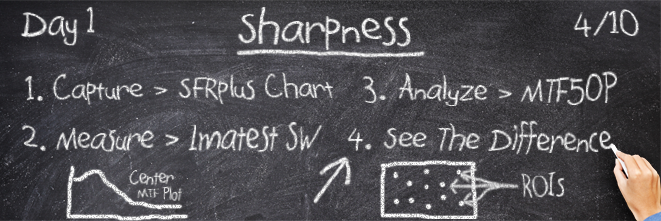 Day 1
Sharpness
4/10
1. Capture > SFRplus Chart
2. Measure > Imatest SW
3. Analyze > MTF50P
4. See The Difference
Center
MTF Plot
ROIs